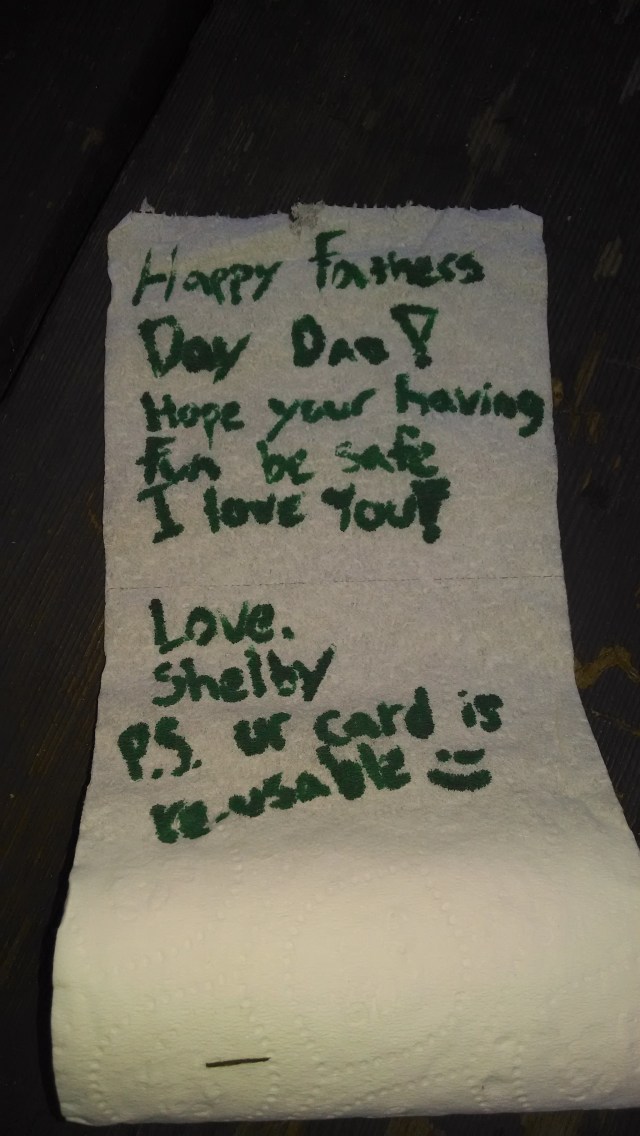 Happy Fathers
Day Dad!
Hope your having
fun be safe
I love You!
Love.
Shelby
P.S. ur card is
re-usable